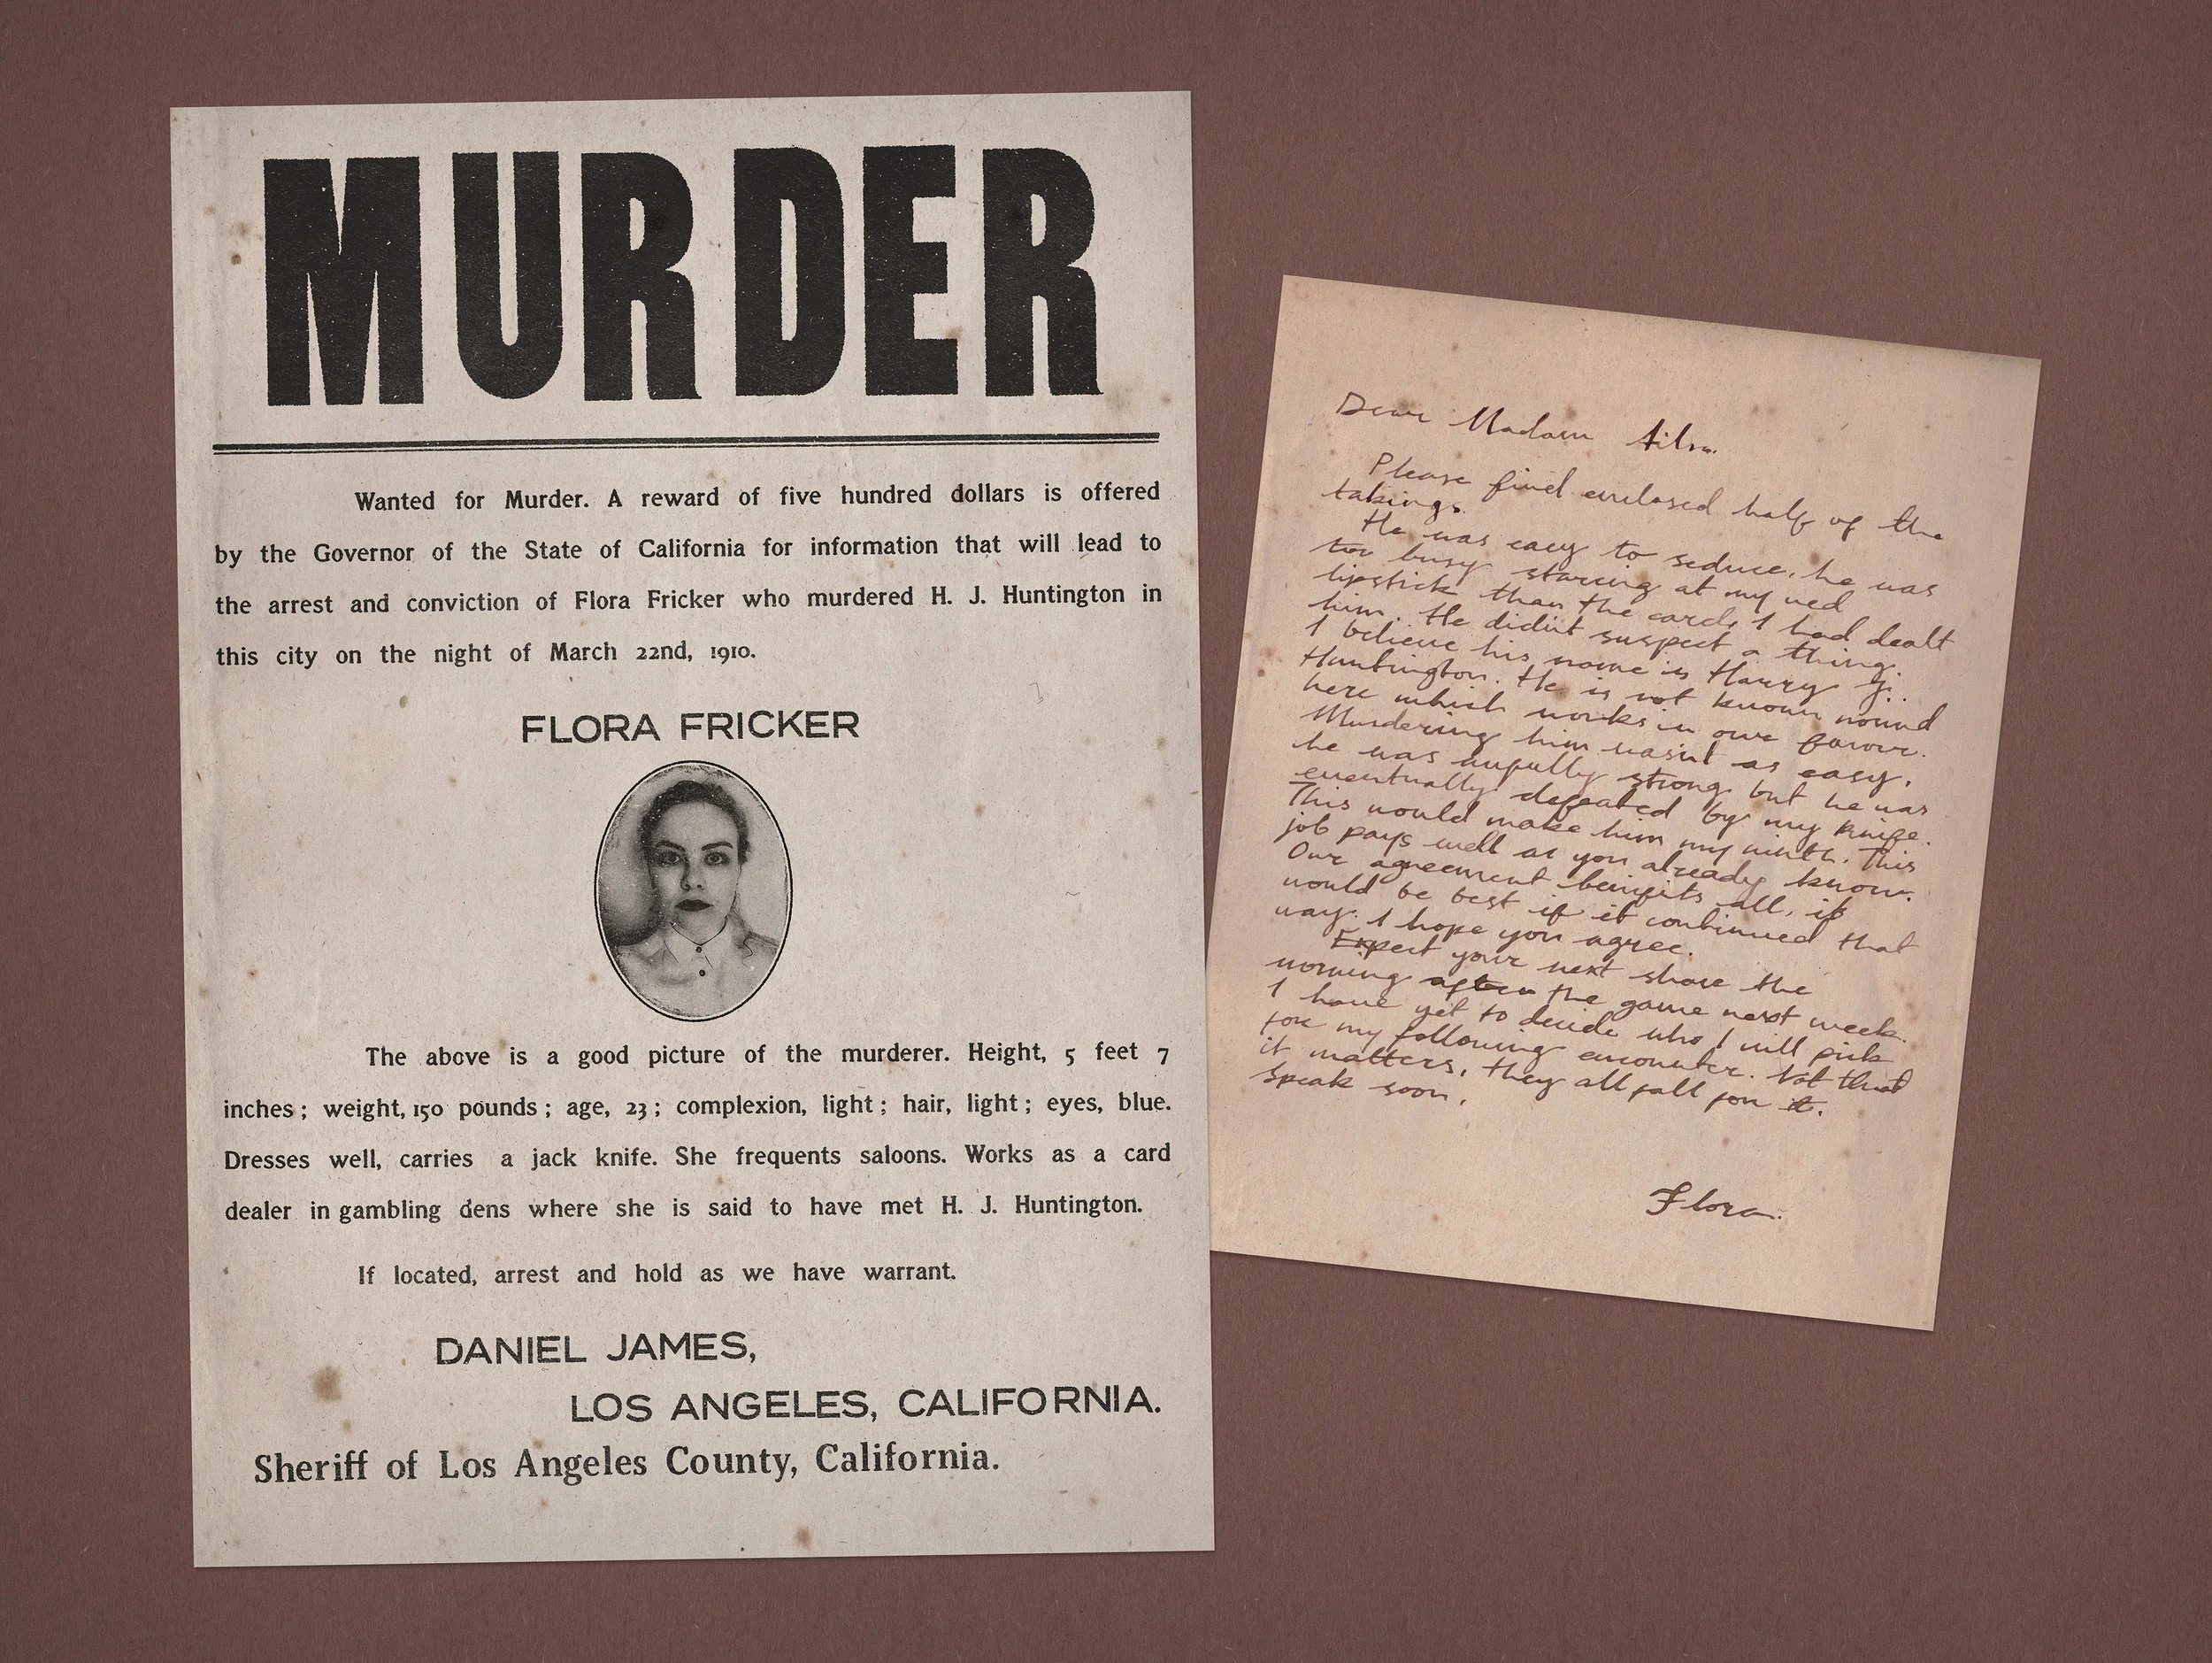 MURDER
Wanted for Murder. A reward of five hundred dollars is offered
by the Governor of the State of California for information that will lead to
the arrest and conviction of Flora Fricker who murdered H. J. Huntington in
this city on the night of March 22nd, 1910.
FLORA FRICKER
The above is a good picture of the murderer. Height, 5 feet 7
inches; weight, 150 pounds; age, 23; complexion, light; hair, light; eyes, blue.
Dresses well, carries a jack knife. She frequents saloons. Works as a card
dealer in gambling dens where she is said to have met H. J. Huntington.
If located, arrest and hold as we have warrant.
DANIEL JAMES,
LOS ANGELES, CALIFORNIA.
Sheriff of Los Angeles County, California.
Dear Madam Ailsa.
Please find enclosed half of the
takings.
He was easy to seduce, he was
too busy staring at my red
lipstick than the cards I had dealt
him. He didn't suspect a thing.
I believe his name is Harry J.
Huntington. He is not known round
here which works in our favour.
Murdering him wasn't as easy,
he was awfully strong but he was
eventually defeated by my knife.
This would make him my ninth. This
job pays well as you already know.
Our agreement benifits all, it
would be best if it continued that
way. I hope you agree.
Expect your next share the
morning after the game next week.
I have yet to decide who I will pick
for my following encounter. Not that
it matters, they all fall for it.
Speak soon,
Flora.